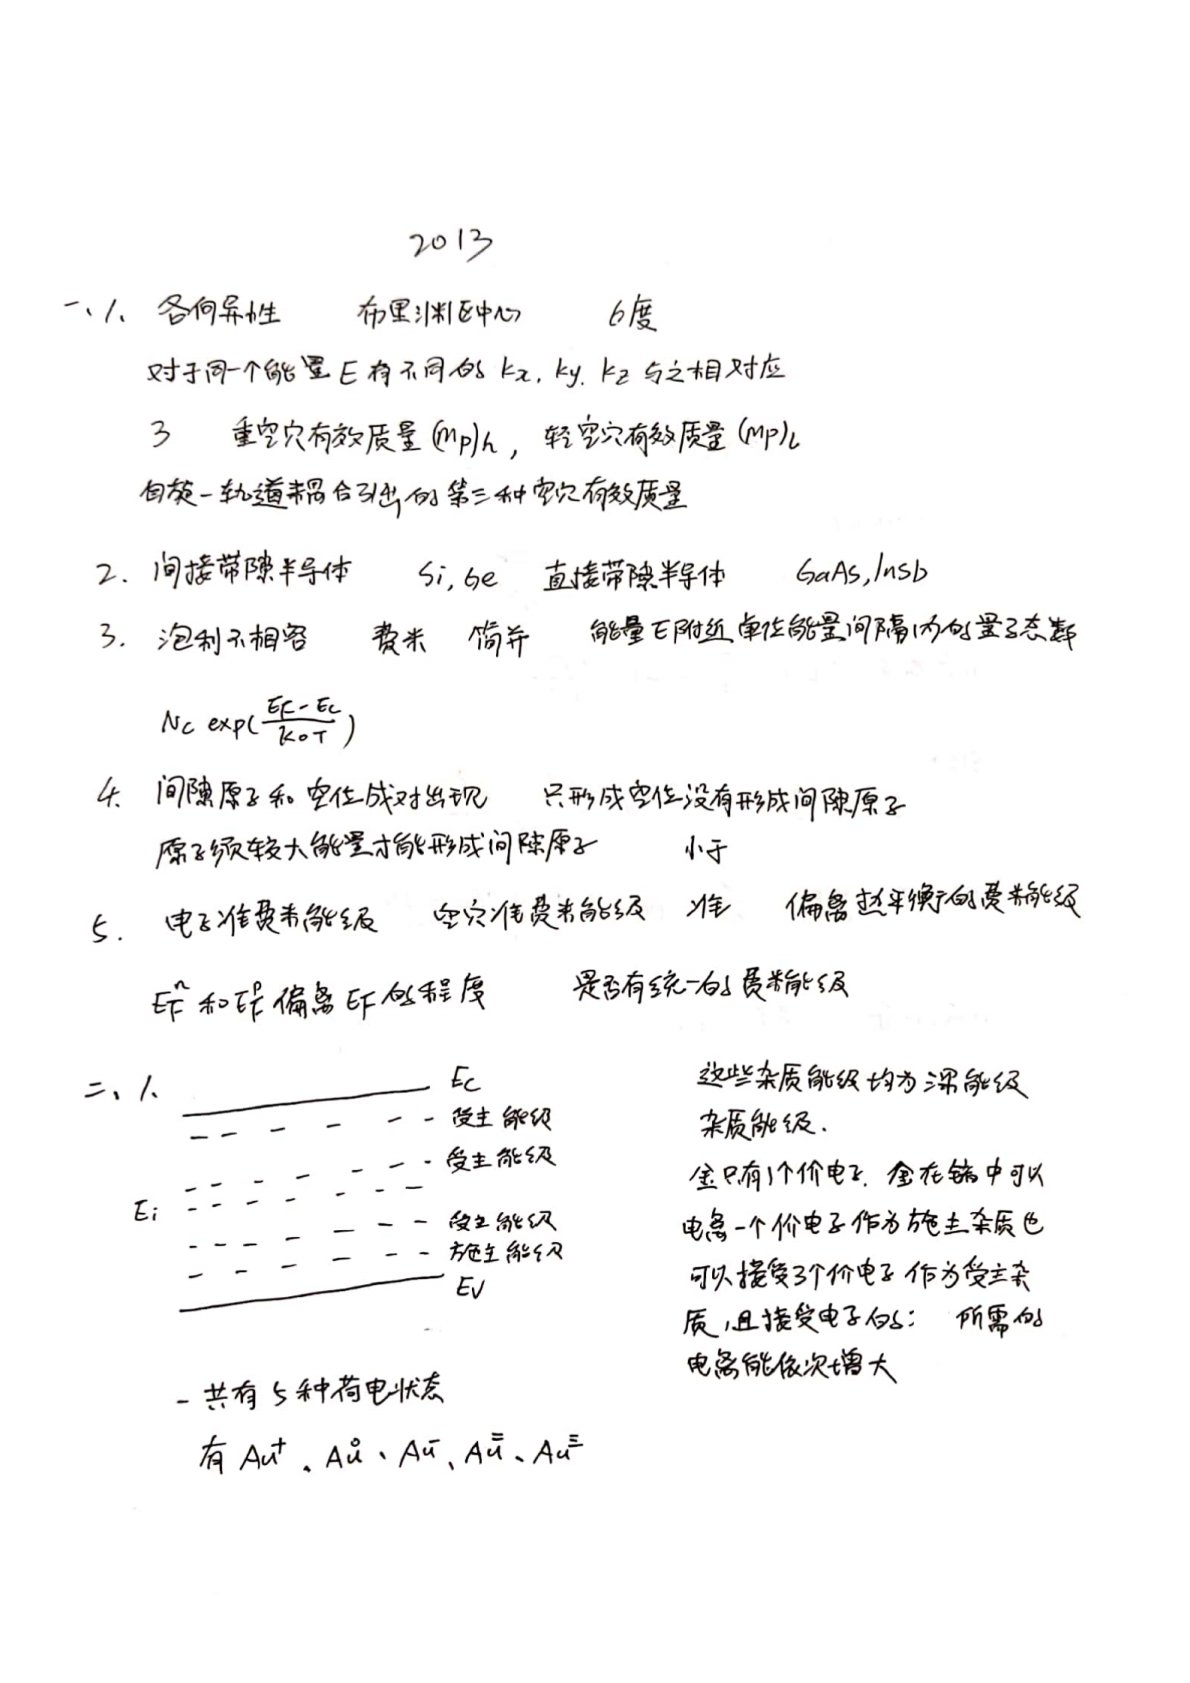 2013
一、1. 各向异性 布里渊区中心 6度
对于同一个能量E有不同的 kx, ky, kz 与之相对应
3 重空穴有效质量(mp)h, 轻空穴有效质量(mp)l
自旋-轨道耦合引出的第三种空穴有效质量
2. 间接带隙半导体 Si, Ge 直接带隙半导体 GaAs, InSb
3. 泡利不相容 费米 简并 能量E附近单位能量间隔内的量子态数
Nc exp(\frac{EF-Ec}{k0T})
4. 间隙原子和空位成对出现 只形成空位没有形成间隙原子
原子须较大能量才能形成间隙原子 小于
5. 电子准费米能级 空穴准费米能级 准 偏离于平衡的费米能级
EFn 和 EFp 偏离 EF 的程度 是否有统一的费米能级
二、1.
Ec
受主能级
受主能级
Ei
受主能级
施主能级
Ev
一共有5种荷电状态
有 Au⁺、Au⁰、Au⁻、Au⁼、Au≡
这些杂质能级均为深能级
杂质能级.
金只有1个价电子. 金在锗中可以
电离一个价电子作为施主杂质也
可以接受3个价电子作为受主杂
质,且接受电子的: 所需的
电离能依次增大